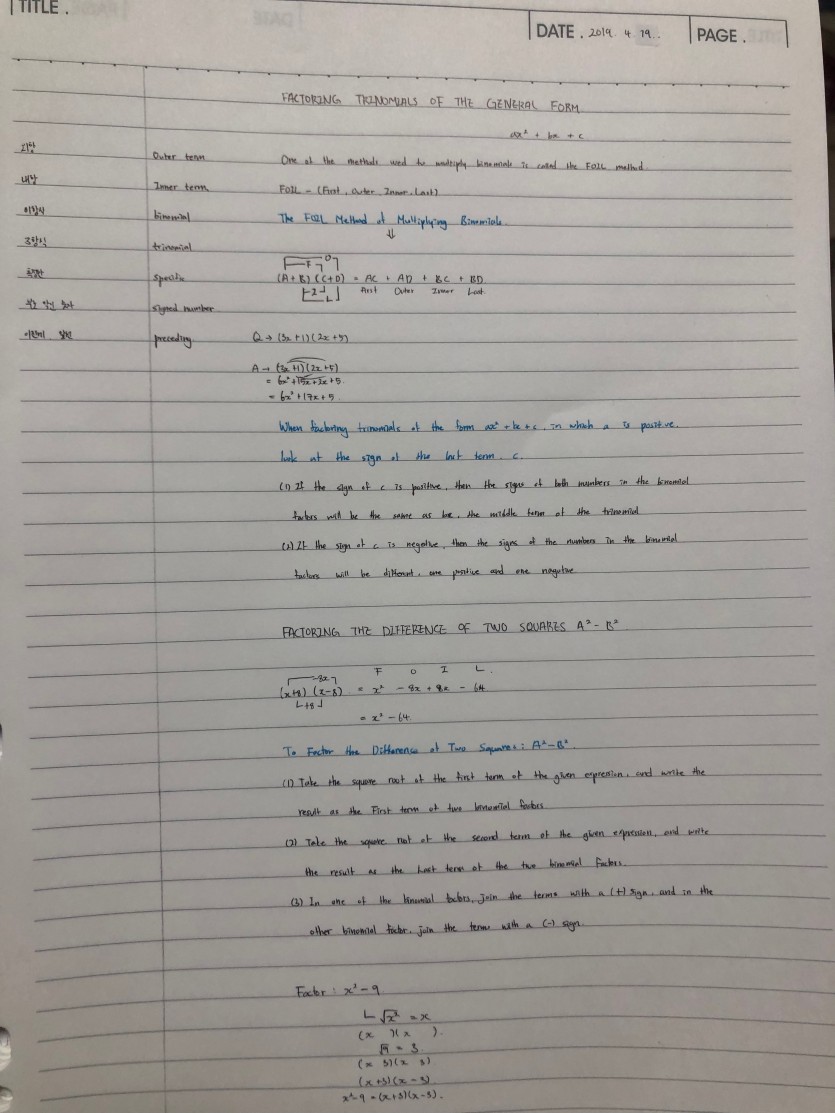 TITLE .
DATE . 2019. 4. 19..
PAGE .
FACTORING TRINOMIALS OF THE GENERAL FORM
ax² + bx + c
외항 Outer term One of the methods used to multiply binomials is called the FOIL method.
내항 Inner term FOIL - (First, Outer, Inner, Last)
이항식 binomial The FOIL Method of Multiplying Binomials.
⇓
3항식 trinomial
F O
specific (A+B)(C+D) = AC + AD + BC + BD
I L First Outer Inner Last
signed number
preceding Q → (3x+1)(2x+5)
A → (3x+1)(2x+5)
= 6x²+15x+2x+5.
= 6x²+17x+5.
When factoring trinomials of the form ax²+bx+c, in which a is positive.
look at the sign of the last term, c.
(1) If the sign of c is positive, then the signs of both numbers in the binomial
factors will be the same as bx, the middle term of the trinomial
(2) If the sign of c is negative, then the signs of the numbers in the binomial
factors will be different, one positive and one negative
FACTORING THE DIFFERENCE OF TWO SQUARES A²-B²
-8x F O I L.
(x+8)(x-8) = x² - 8x + 8x - 64
+8
= x²-64.
To Factor the Difference of Two Squares: A²-B².
(1) Take the square root of the first term of the given expression, and write the
result as the First term of two binomial factors
(2) Take the square root of the second term of the given expression, and write
the result as the Last term of the two binomial factors.
(3) In one of the binomial factors, join the terms with a (+) sign, and in the
other binomial factor, join the terms with a (-) sign.
Factor : x²-9
√x² = x
(x )(x ).
√9 = 3.
(x 3)(x 3)
(x+3)(x-3)
x²-9 = (x+3)(x-3).